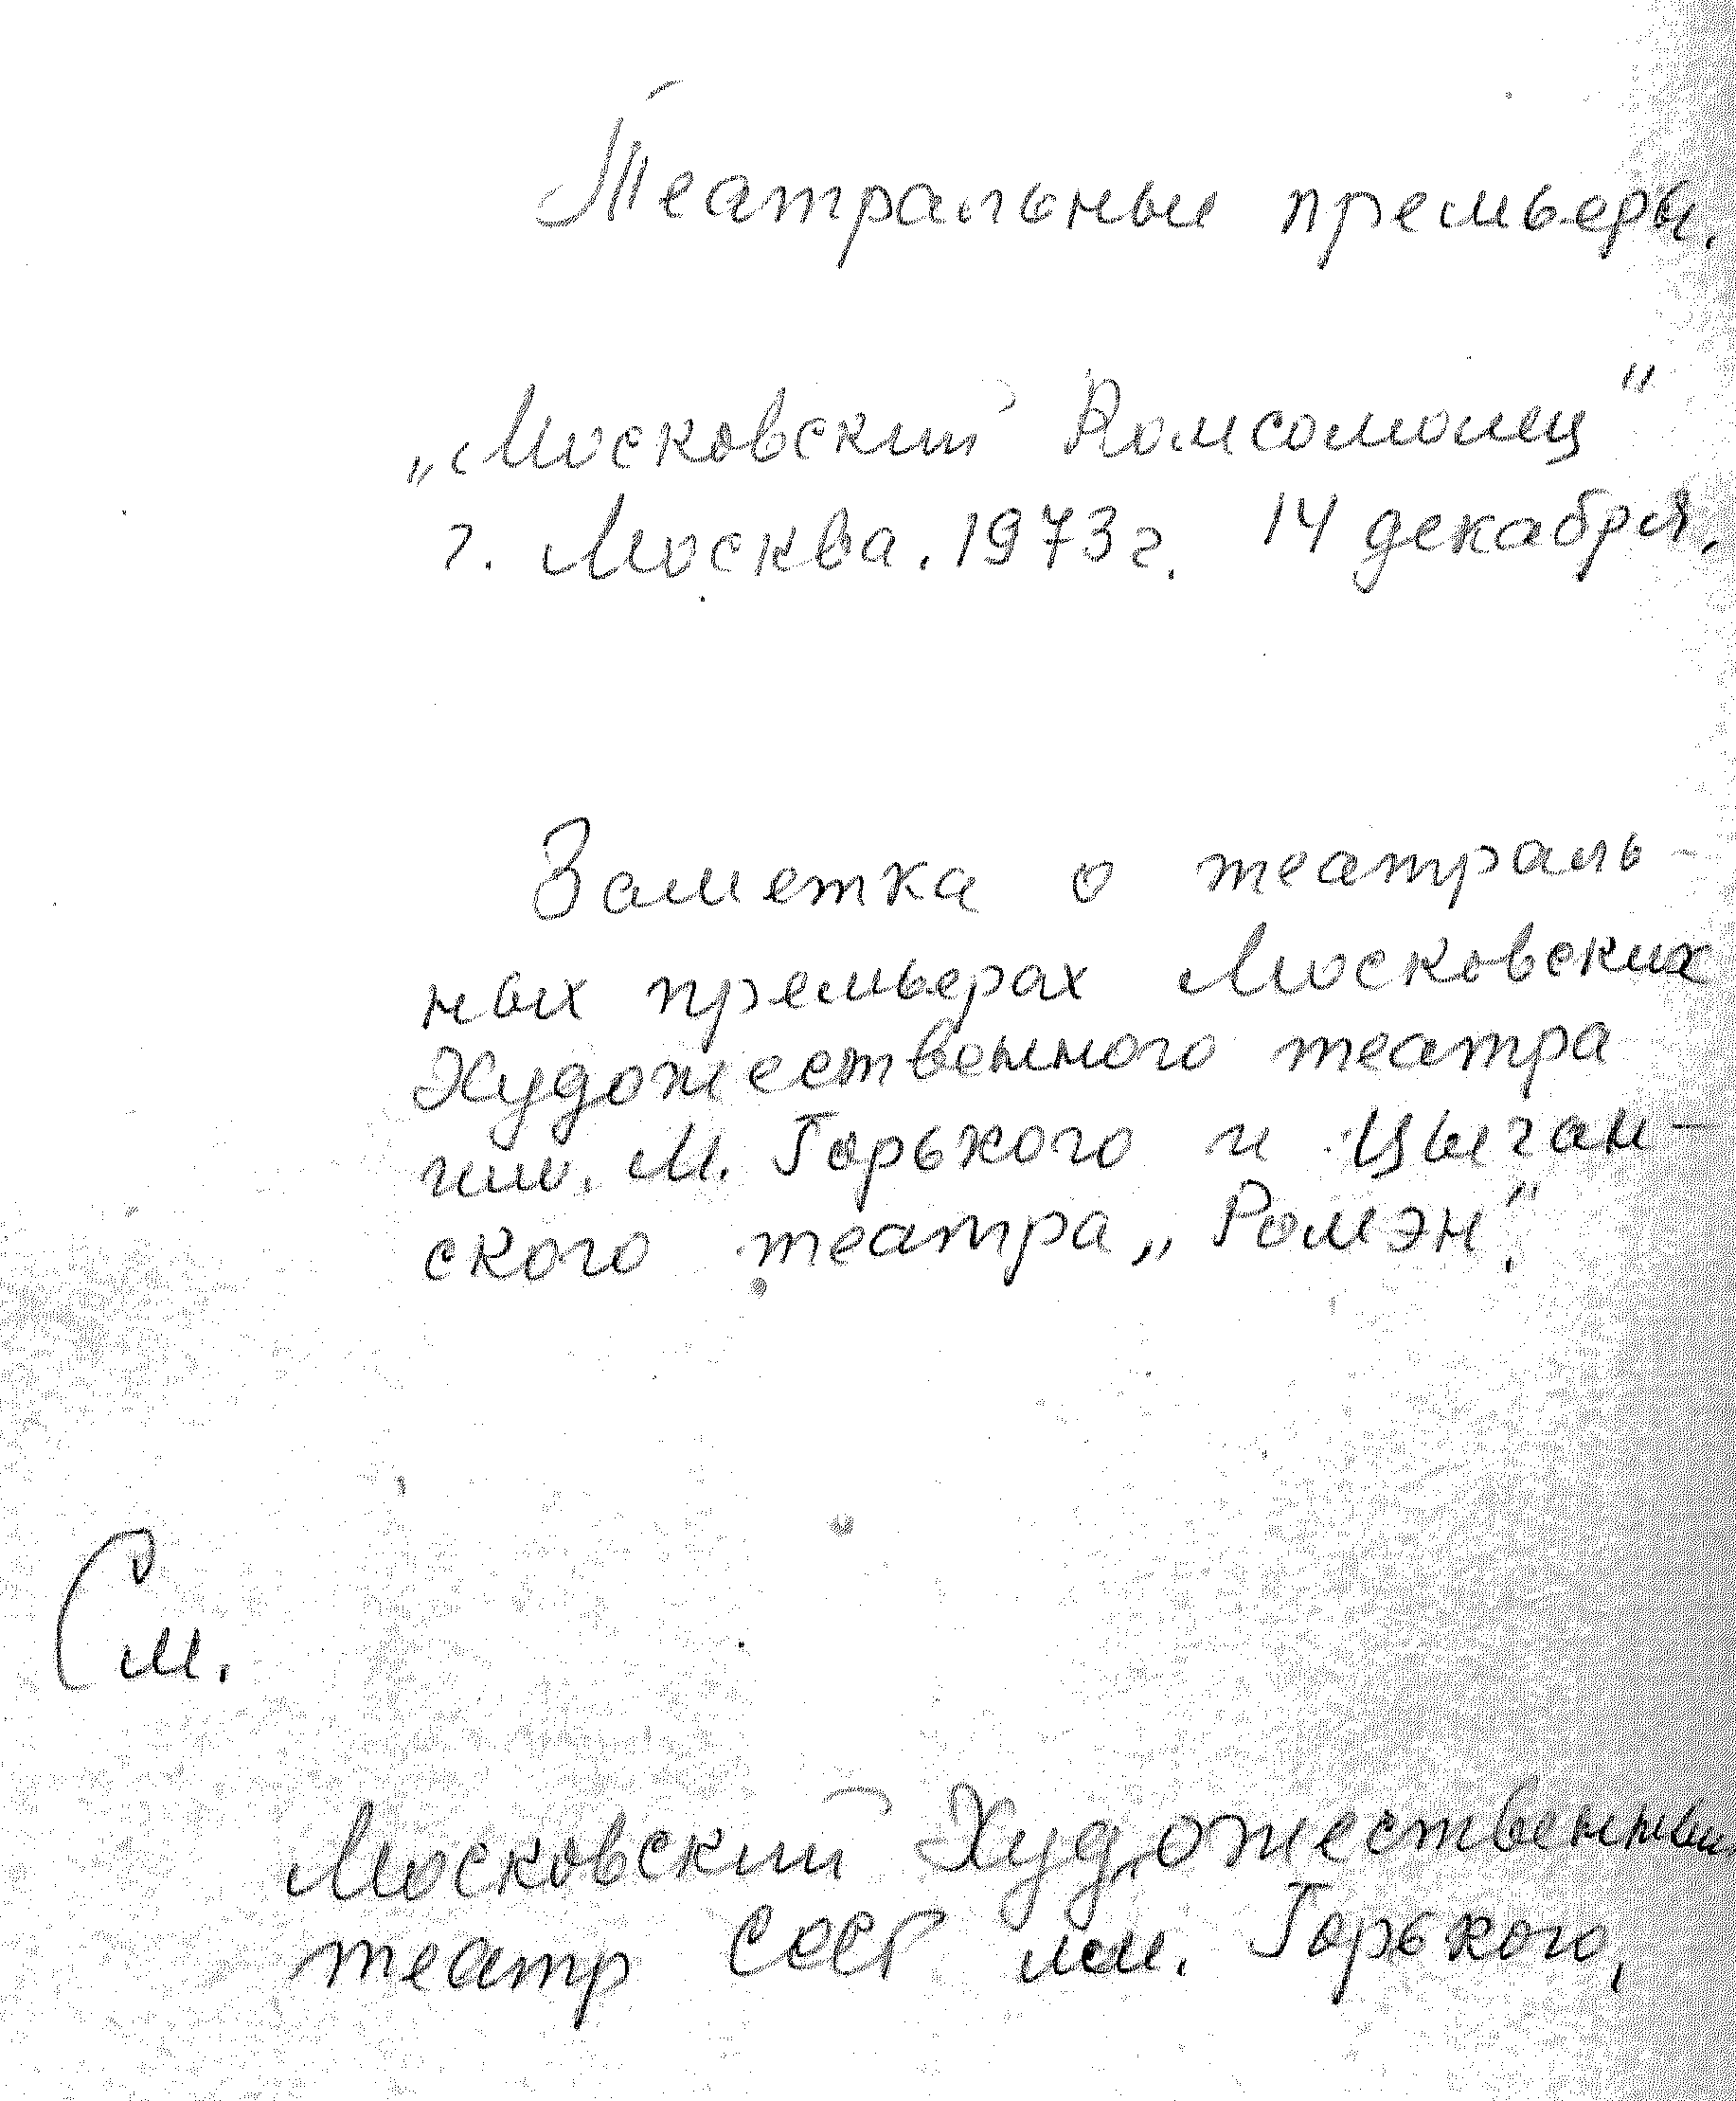 Театральные премьеры.
„Московский Комсомолец"
г. Москва. 1973 г. 14 декабря.
Заметка о театраль-
ных премьерах Московских
Художественного театра
им. М. Горького и Цыган-
ского театра „Ромэн".
См.
Московский Художественный
театр СССР им. Горького,